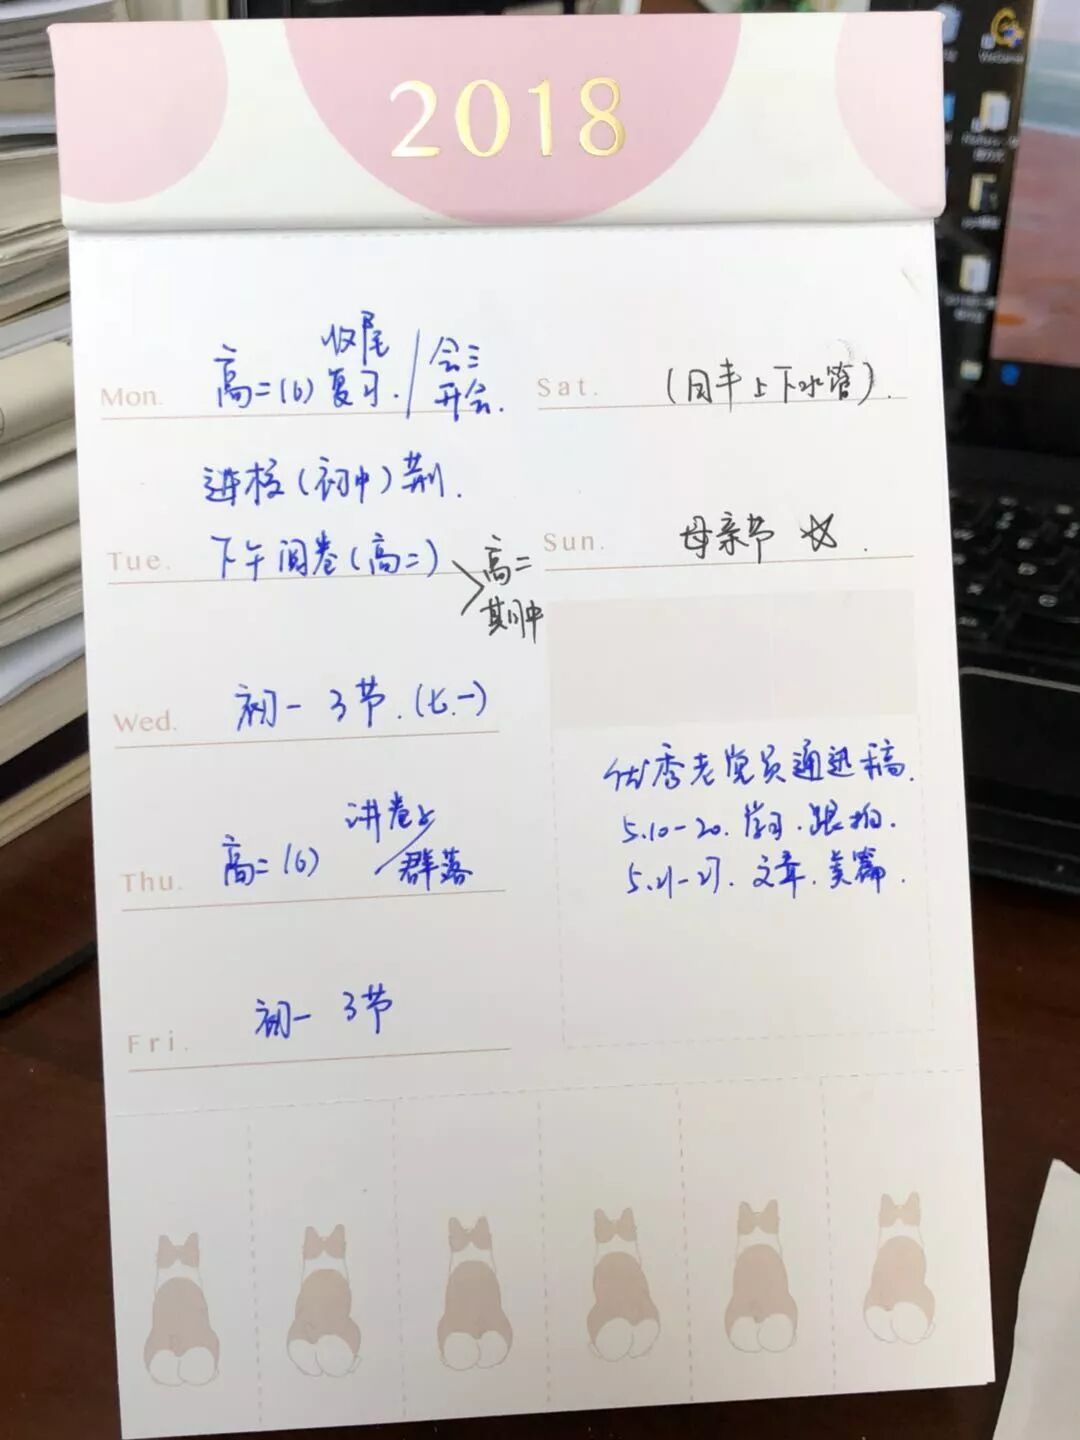 2018
收尾
Mon. 高二(6)复习. / 会议
开会.
进校(初中)荆.
Tue. 下午阅卷(高二) > 高二
期中
Wed. 初一 3节.(七.一)
讲卷
Thu. 高二(6) / 群落
Fri. 初一 3节
Sat. (同丰上下水管).
Sun. 母亲节 ☆.
优秀老党员通迅稿.
5.10-20. 学习.跟拍.
5.21-27. 文章.美篇.